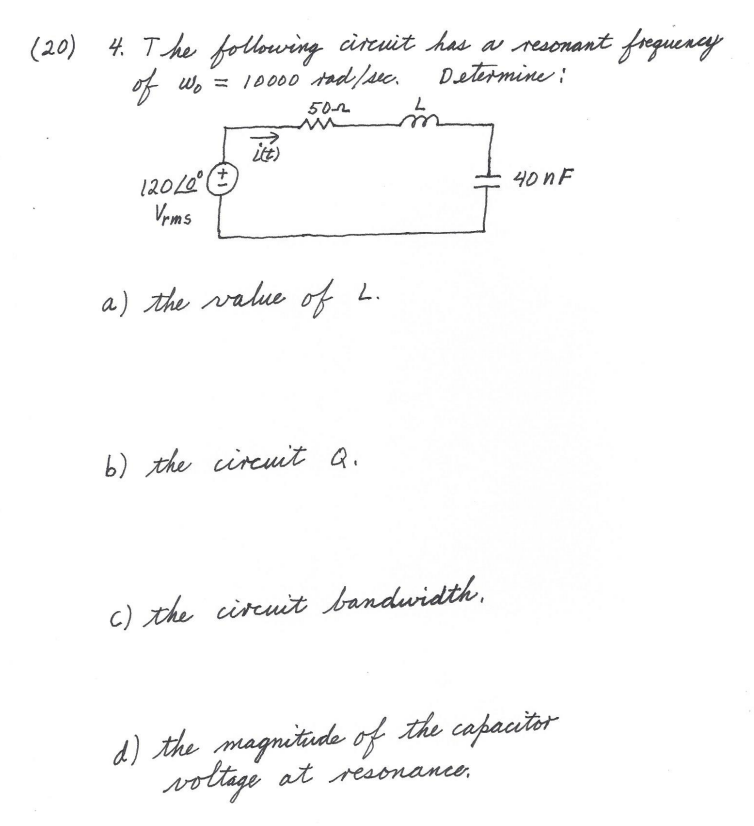 (20) 4. The following circuit has a resonant frequency
of ω₀ = 10000 rad/sec. Determine:
50Ω
L
i(t)
120∠0°
Vrms
+
-
40 nF
a) the value of L.
b) the circuit Q.
c) the circuit bandwidth.
d) the magnitude of the capacitor
voltage at resonance.